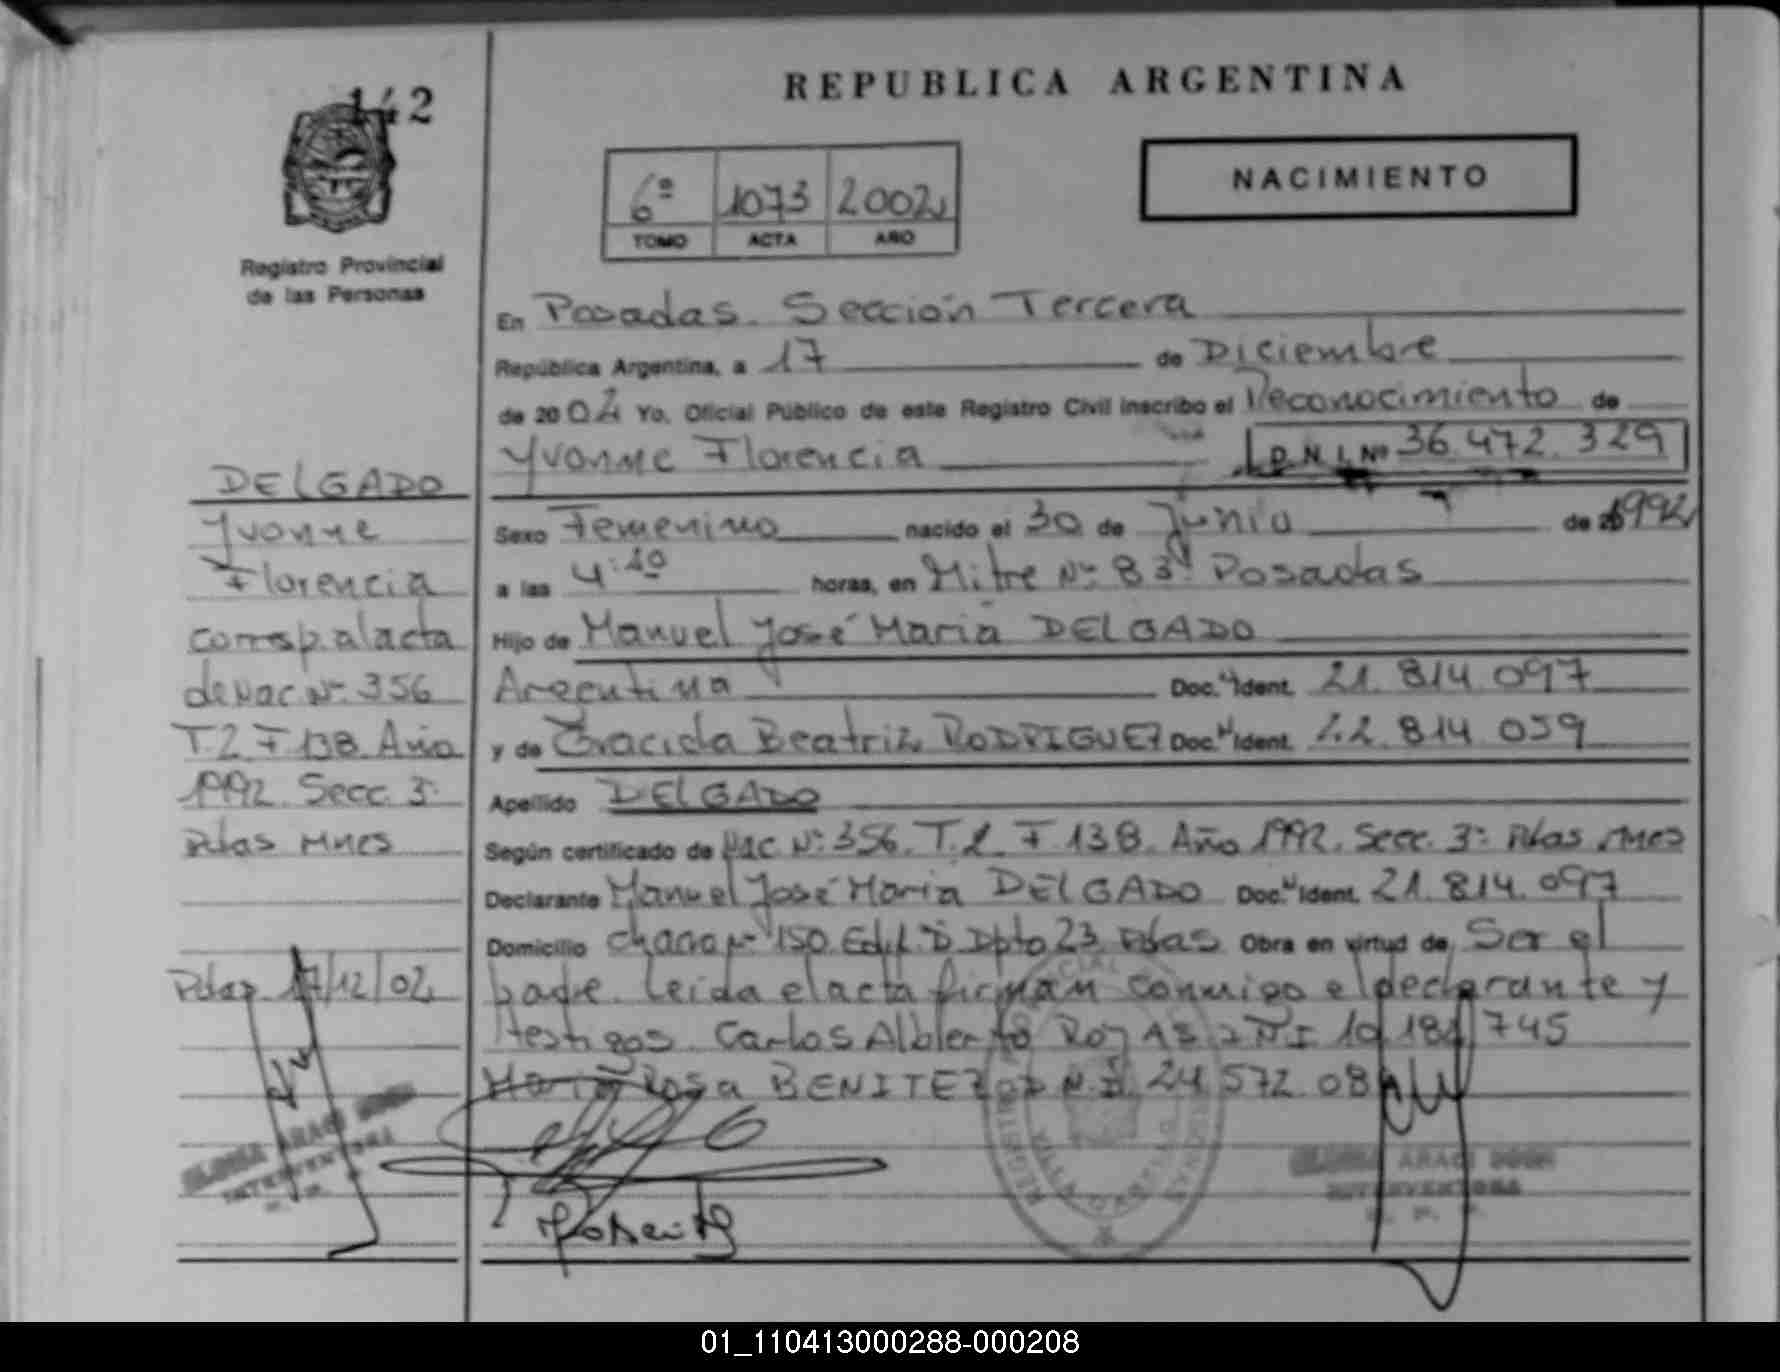 142
REPUBLICA ARGENTINA
6º 1073 2002
TOMO ACTA AÑO
NACIMIENTO
Registro Provincial
de las Personas
En Posadas. Sección Tercera
República Argentina, a 17 de Diciembre
de 2002 Yo, Oficial Público de este Registro Civil inscribo el Reconocimiento de
Yvonne Florencia D.N.I. Nº 36.472.329
Sexo Femenino nacido el 30 de Junio de 1992
a las horas, en Mitre Nº 83 Posadas
Hijo de Manuel José Maria DELGADO
Argentina Doc. Ident. 21.814.097
y de Graciela Beatriz RODRIGUEZ Doc. Ident. 22.814.059
Apellido DELGADO
Según certificado de Nac Nº 356. T.2 F 138. Año 1992. Secc. 3º Pdas Mnes
Declarante Manuel José Maria DELGADO Doc. Ident. 21.814.097
Domicilio chacra Nº 150. Edif. D Dpto 23 Pdas Obra en virtud de Ser el
padre. Leida el acta firman conmigo el declarante y
testigos. Carlos Alberto ROJAS DNI 745
Maria Rosa BENITEZ D.N.I. 24.572.08
DELGADO
Yvonne
Florencia
corresp. al acta
de Nac. Nº 356
T.2 F 138 Año
1992. Secc. 3º
Pdas Mnes
Pdas 17/12/02
ARACI
INTERVENTORA
ARACI
INTERVENTORA
01_110413000288-000208